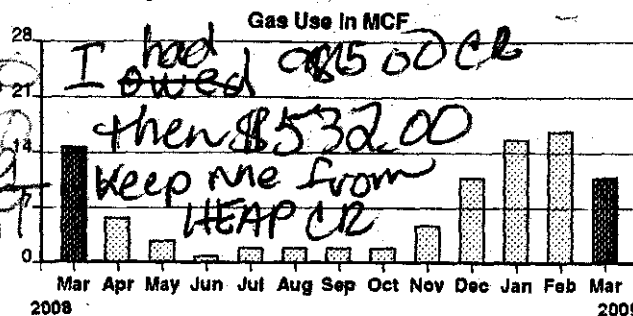 Gas Use In MCF
28
21
14
7
0
I had owed a $500 CR
then $532.00
Keep me from
HEAP CR
Mar Apr May Jun Jul Aug Sep Oct Nov Dec Jan Feb Mar
2008 2009